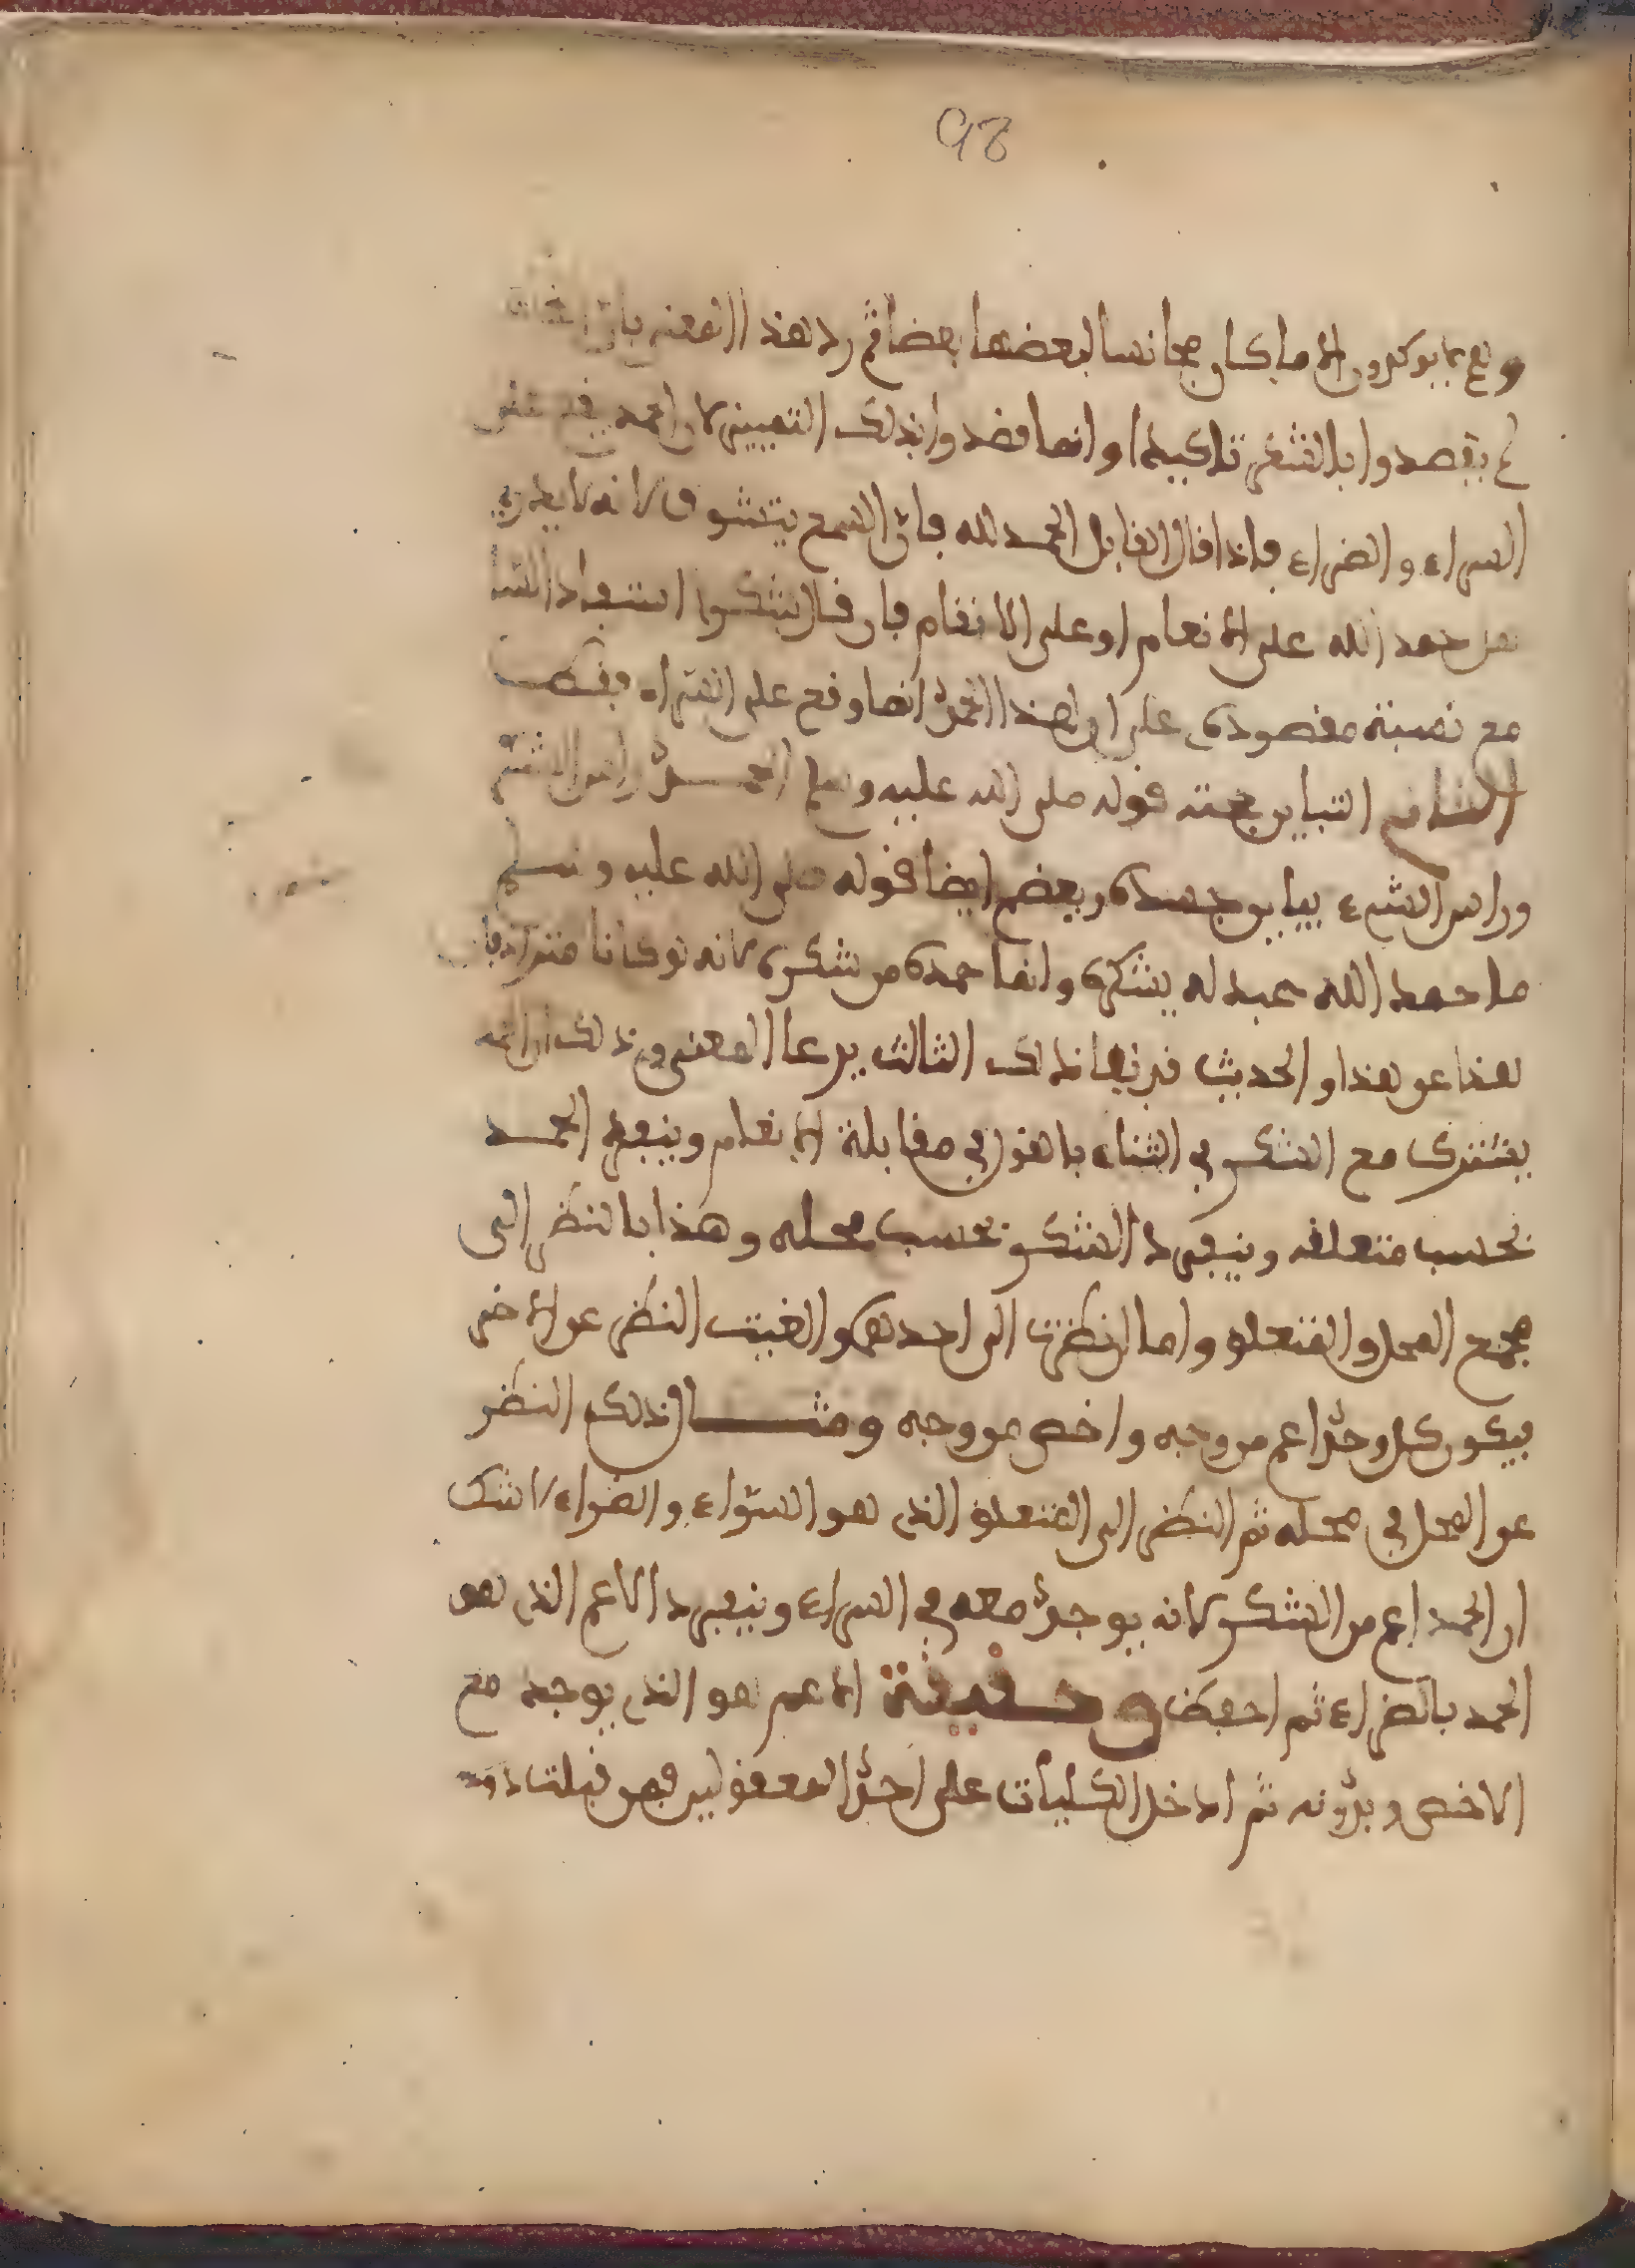 98
وهم لا يوكدون الا ما كان مجانسا لبعضها بعضا ثم رد هذا المعنى بان
لم يقصدوا بالشكر تاكيدا وانما قصدوا بذلك التمييز لان الحمد
السراء والضراء فاذا قال القايل الحمد لله فان السمع يتشوف لانه لا يدري
هل حمد الله على الانعام او على الانتقام فان قال شكرا استفاد السا
مع نصبته مقصوده على ان هذا الحمد انما وقع على السراء فقط
الثاني التباين بحجته قوله صلى الله عليه وسلم الحمد راس الشكر
وراس الشيء يباين جسده وبعضه ايضا قوله صلى الله عليه وسلم
ما حمد الله عبد لم يشكره وانما حمده من شكره لانه لو كانا مترادفان
هذا عن هذا والحديث فيرفعا ذلك الثالث يرعا المعنى وذلك ان الحمد
يشترك مع الشكر في الثناء بالقول في مقابلة الانعام وينفرد الحمد
بحسب متعلقه وينفرد الشكر بحسب محله وهذا بالنظر الى
مجمع المحل والمتعلق واما ان نظرت الى احدهما والغيت النظر عن الاخر
فيكون كل وحد اعم من وجه واخص من وجه ومثال ذلك النظر
عن المحل في محله ثم النظر الى المتعلق الذي هو السراء والضراء لا شك
ان الحمد اعم من الشكر لانه يوجد معه في السراء وينفرد الاعم الذي هو
الحمد بالضراء ثم احفظ وحقيقة الاعم هو الذي يوجد مع
الاخص وبدونه ثم ادخل الكليات على احد المعقولين فمن قبلت